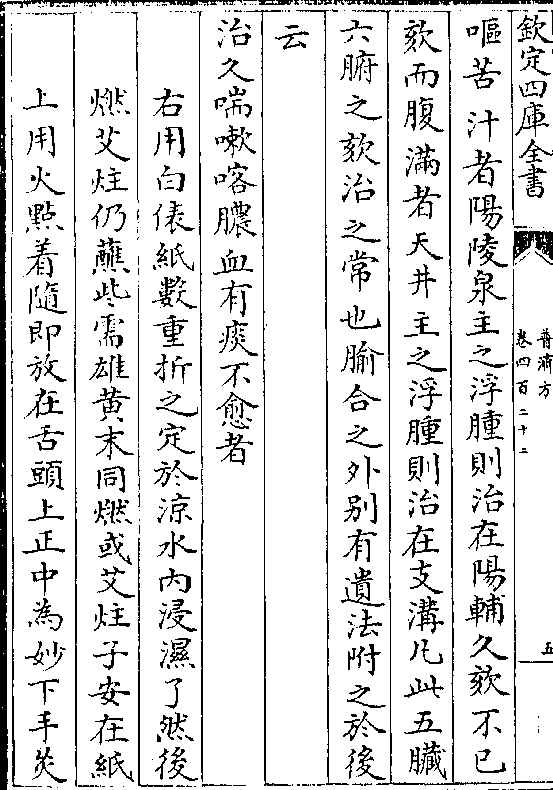 欽定四庫全書
普濟方
卷四百二十二
五
嘔苦汁者陽陵泉主之浮腫則治在陽輔久欬不已
欬而腹滿者天井主之浮腫則治在支溝凡此五臟
六腑之欬治之常也腧合之外别有遺法附之於後
云
治久喘嗽喀膿血有痰不愈者
右用白俵紙數重折之定於涼水内浸濕了然後
燃艾炷仍蘸些需雄黄末同燃或艾炷子安在紙
上用火點着隨即放在舌頭上正中為妙下手灸